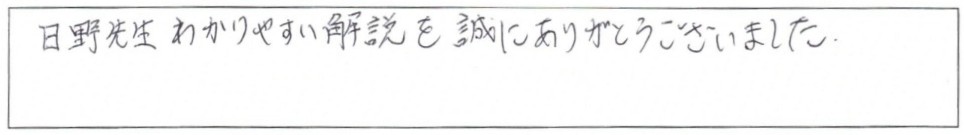 日野先生 わかりやすい解説を 誠にありがとうございました.